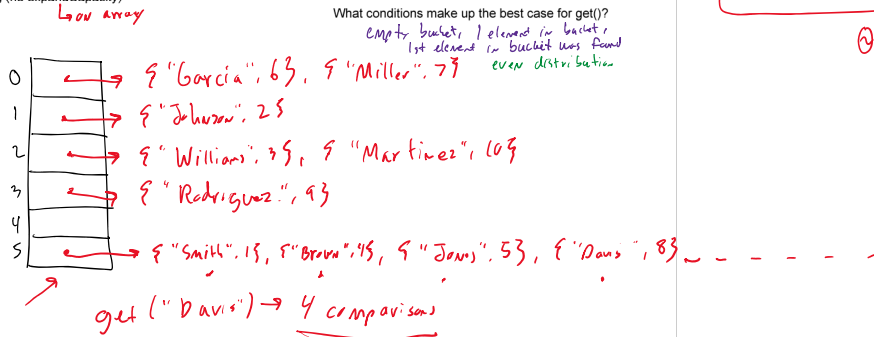 ↳ on array
What conditions make up the best case for get()?
empty bucket, 1 element in bucket,
1st element in bucket was found
even distribution
0 → {"Garcia", 6}, {"Miller", 7}
1 → {"Johnson", 2}
2 → {"Williams", 3}, {"Martinez", 10}
3 → {"Rodriguez", 9}
4
5 → {"Smith", 1}, {"Brown", 4}, {"Jones", 5}, {"Davis", 8}
get("Davis") → 4 comparisons